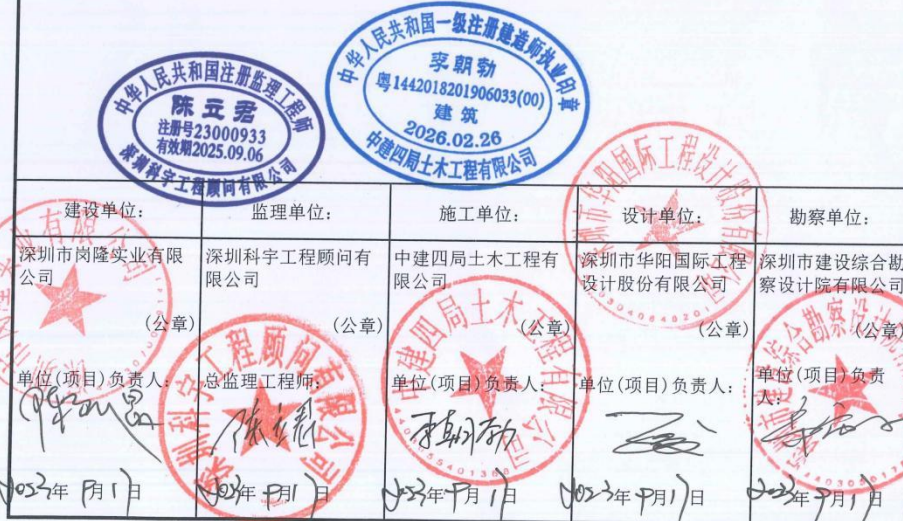 中华人民共和国注册监理工程师
陈立君
注册号23000933
有效期2025.09.06
深圳科宇工程顾问有限公司
中华人民共和国一级注册建造师执业印章
李朝勃
粤1442018201906033(00)
建筑
2026.02.26
中建四局土木工程有限公司
建设单位:
监理单位:
施工单位:
设计单位:
勘察单位:
深圳市岗隆实业有限
公司
深圳科宇工程顾问有
限公司
中建四局土木工程有
限公司
深圳市华阳国际工程
设计股份有限公司
深圳市建设综合勘
察设计院有限公司
(公章)
(公章)
(公章)
(公章)
(公章)
单位(项目)负责人:
总监理工程师:
单位(项目)负责人:
单位(项目)负责人:
单位(项目)负责
人:
李朝勃
2023年 月17日
2023年 月17日
2023年 月17日
2023年 月17日
2023年 月17日
深圳科宇工程顾问有限公司
中建四局土木工程有限公司
深圳市华阳国际工程设计股份有限公司